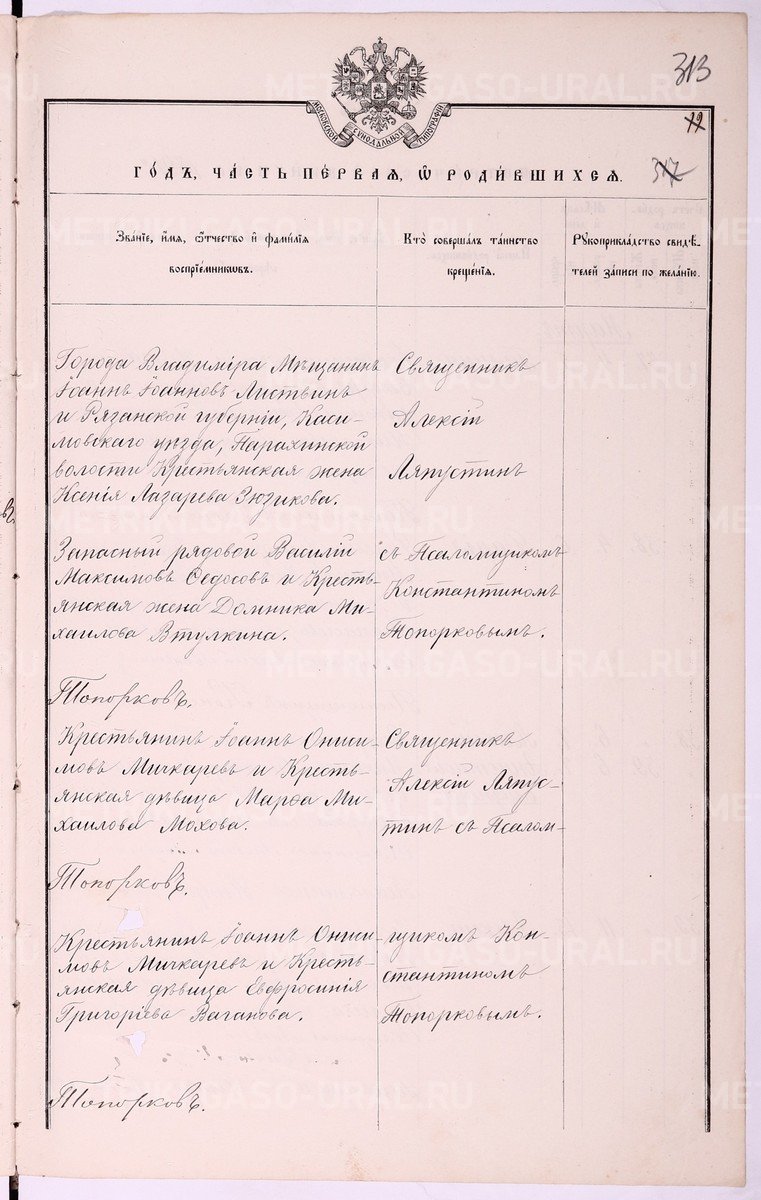 313
19
317
МОСКОВСКОЙ СУНОДАЛЬНОЙ ТИПОГРАФІИ
ГОДЪ, ЧАСТЬ ПЕРВАЯ, Ѿ РОДИВШИХСЯ.
Званіе, имя, отчество и фамилія
воспріемниковъ.
Кто совершалъ таинство
крещенія.
Рукоприкладство свидѣ-
телей записи по желанію.
Города Владиміра Мѣщанинъ
Іоаннъ Іоанновъ Листвинъ
и Рязанской губерніи, Каси-
мовскаго уѣзда, Парахинской
волости Крестьянская жена
Ксенія Лазарева Зюзикова.
Священникъ
Алексій
Ляпустинъ
Запасный рядовой Василій
Максимовъ Ѳедосовъ и Кресть-
янская жена Домника Ми-
хаилова Втулкина.
съ Псаломщикомъ
Константиномъ
Топорковымъ.
Топорковъ.
Крестьянинъ Іоаннъ Ониси-
мовъ Мичкаревъ и Кресть-
янская дѣвица Марѳа Ми-
хаилова Мохова.
Священникъ
Алексій Ляпус-
тинъ съ Псалом-
Топорковъ.
Крестьянинъ Іоаннъ Ониси-
мовъ Мичкаревъ и Кресть-
янская дѣвица Евфросинія
Григоріева Ваганова.
щикомъ Кон-
стантиномъ
Топорковымъ.
Топорковъ.
METRIKI.GASO-URAL.RU